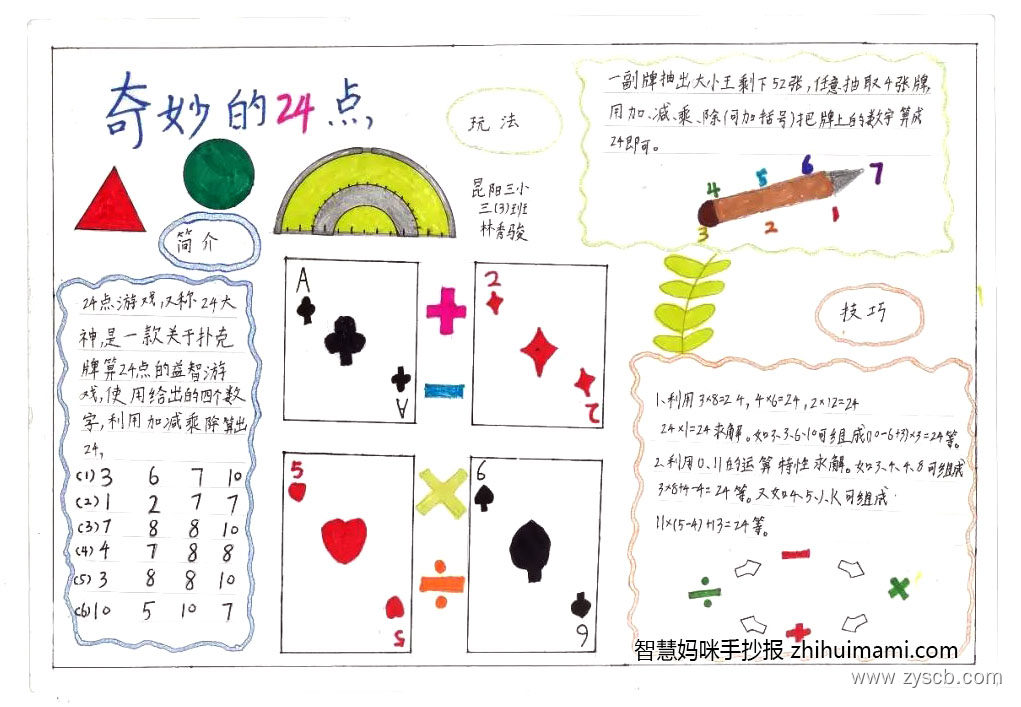 奇妙的24点
玩法
一副牌抽出大小王剩下52张,任意抽取4张牌,
用加、减、乘、除(可加括号)把牌上的数字算成
24即可。
昆阳三小
三(3)班
林秀骏
4 5 6 7
3 2 1
简介
24点游戏,又称24大
神,是一款关于扑克
牌算24点的益智游
戏,使用给出的四个数
字,利用加减乘除算出
24,
(1) 3 6 7 10
(2) 1 2 7 7
(3) 7 8 8 10
(4) 4 7 8 8
(5) 3 8 8 10
(6) 10 5 10 7
A + 2
A - 2
5 × 6
5 ÷ 6
技巧
1、利用3×8=24,4×6=24,2×12=24
24×1=24求解。如3、3、6、10可组成(10-6+3)×3=24等。
2、利用0、11的运算特性求解。如3、4、4、8可组成
3×8+4-4=24等。又如4、5、J、K可组成
11×(5-4)+13=24等。
-
÷ ×
+
智慧妈咪手抄报 zhihuimami.com
www.zyscb.com